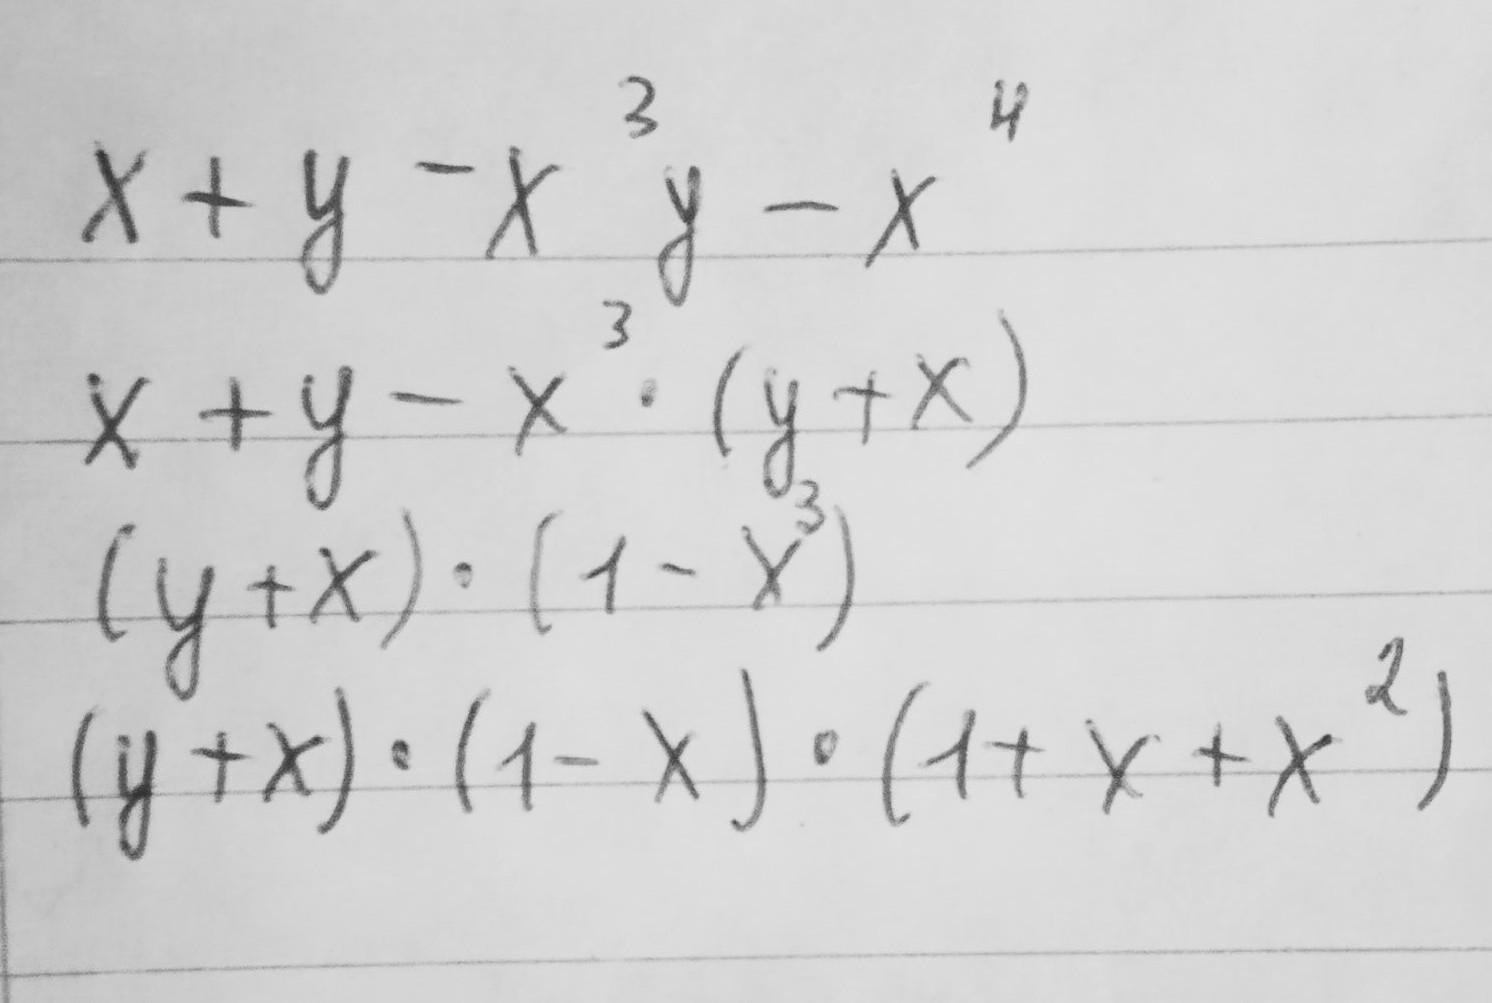 x + y - x³y - x⁴
x + y - x³ · (y + x)
(y + x) · (1 - x³)
(y + x) · (1 - x) · (1 + x + x²)